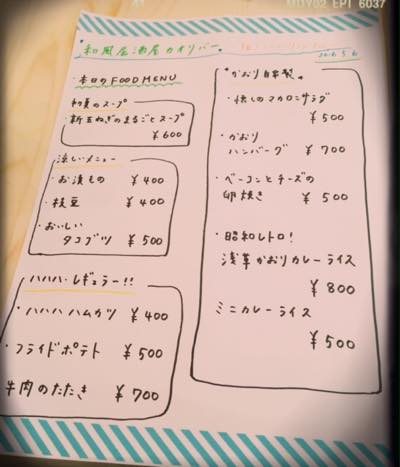 MDY02 EP1 6037
和風居酒屋カイリバー
2016.5.6
・本日のFOOD MENU
初夏のスープ
・新玉ねぎのまるごとスープ
¥600
涼しいメニュー
・お漬もの ¥400
・枝豆 ¥400
・おいしい
タコブツ ¥500
ハハハ・レギュラー!!
・ハハハ ハムカツ ¥400
・フライドポテト ¥500
牛肉のたたき ¥700
かおり自家製
・懐しのマカロニサラダ
¥500
・かおり
ハンバーグ ¥700
・ベーコンとチーズの
卵焼き ¥500
・昭和レトロ!
浅草かおりカレーライス
¥800
ミニカレーライス
¥500